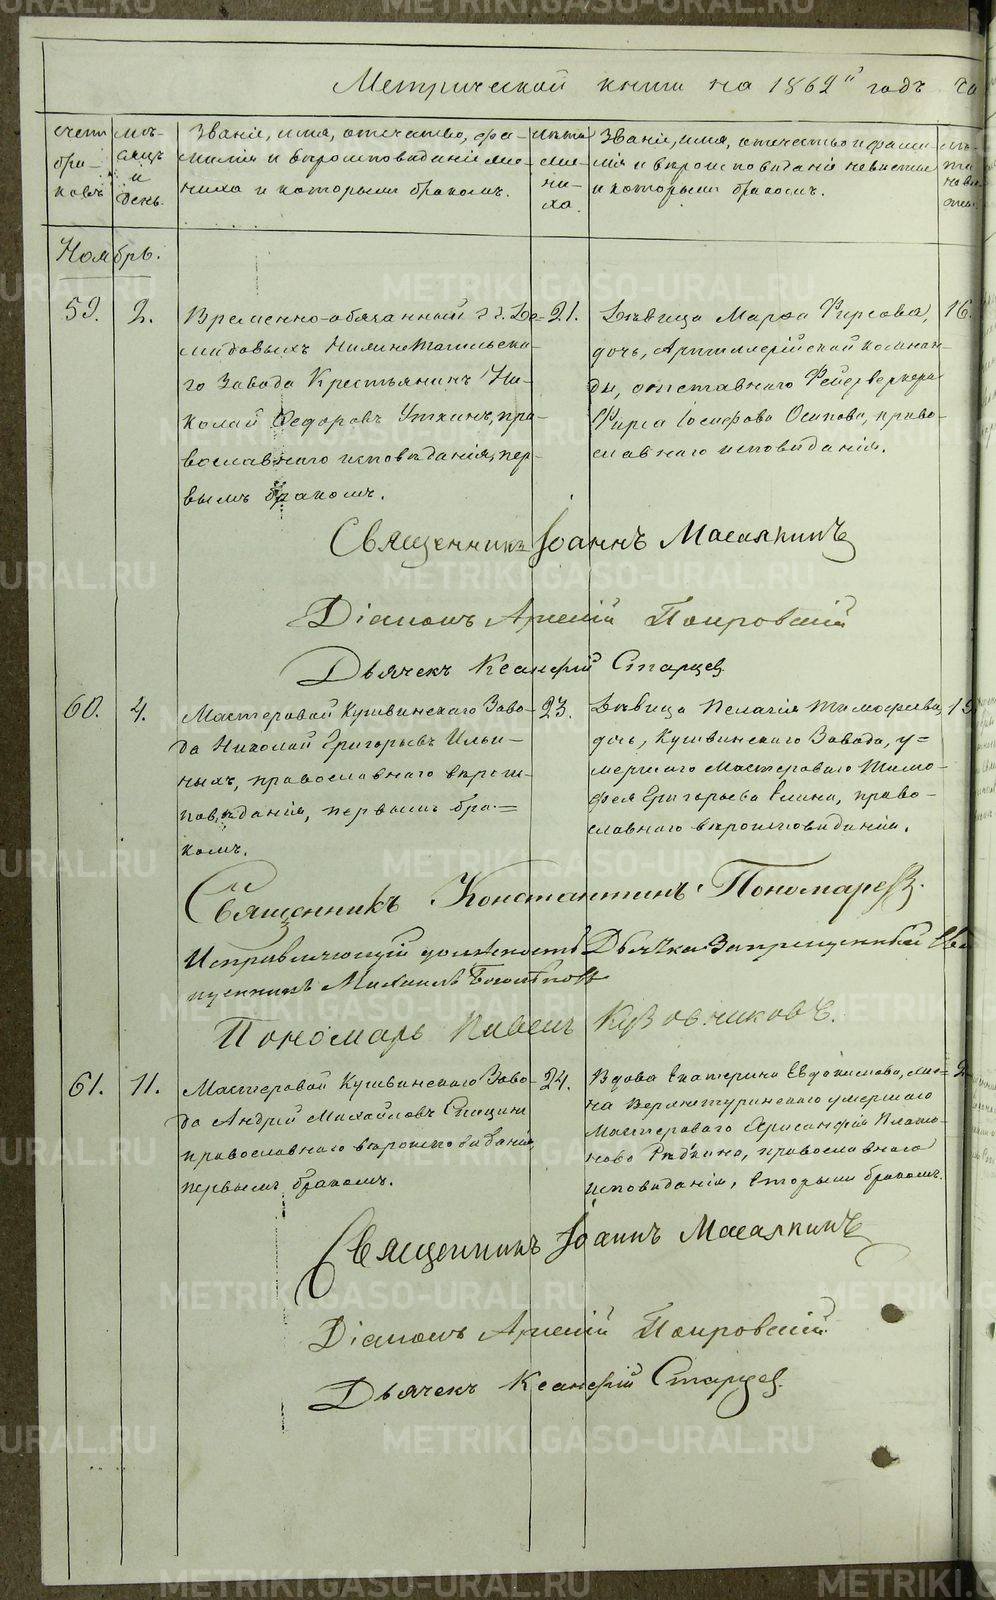 Метрической книги на 1862й годъ
счетъ браковъ
мѣсяцъ и день.
Званіе, имя, отчество, фамилія и вѣроисповѣданіе жениха и которымъ бракомъ.
лѣта жениха.
Званіе, имя, отчество и фамилія и вѣроисповѣданіе невѣсты и которымъ бракомъ.
Ноябрь.
59. 2.
Временно-обязанный г. г. Де-
мидовыхъ Нижнетагильска-
го Завода Крестьянинъ Ни-
колай Федоровъ Уткинъ, пра-
вославнаго исповѣданія, пер-
вымъ бракомъ.
21.
Дѣвица Марфа Фирсова,
дочь, Артиллерійской коман-
ды, отставнаго Фейерверкера
Фирса Іосифова Осипова, право-
славнаго исповѣданія.
16.
Священникъ Іоаннъ Масалкинъ
Діаконъ Арсеній Покровскій
Дьячекъ Ксанфій Старцев
60. 4.
Мастеровой Кушвинскаго Заво-
да Николай Григорьевъ Ильи-
ныхъ, православнаго вѣроис-
повѣданія, первымъ бра-
комъ.
23.
Дѣвица Пелагія Тимофеева,
дочь, Кушвинскаго Завода, у=
мершаго Мастероваго Тимо-
фея Григорьева Елина, право-
славнаго вѣроисповѣданія.
Священникъ Константинъ Пономаревъ.
Исправляющій должность Дьячка Запрещенный
Михаилъ
Пономарь Павелъ Кузовниковъ.
61. 11.
Мастеровой Кушвинскаго Заво-
да Андрей Михайловъ
православнаго вѣроисповѣданія,
первымъ бракомъ.
24.
Вдова Екатерина Евдокимова, же-
на Верхнетуринскаго умершаго
Мастероваго Хрисанфа Плато-
нова Рѣдкина, православнаго
исповѣданія, вторымъ бракомъ.
Священникъ Іоаннъ Масалкинъ
Діаконъ Арсеній Покровскій
Дьячекъ Ксанфій Старцев.
METRIKI.GASO-URAL.RU